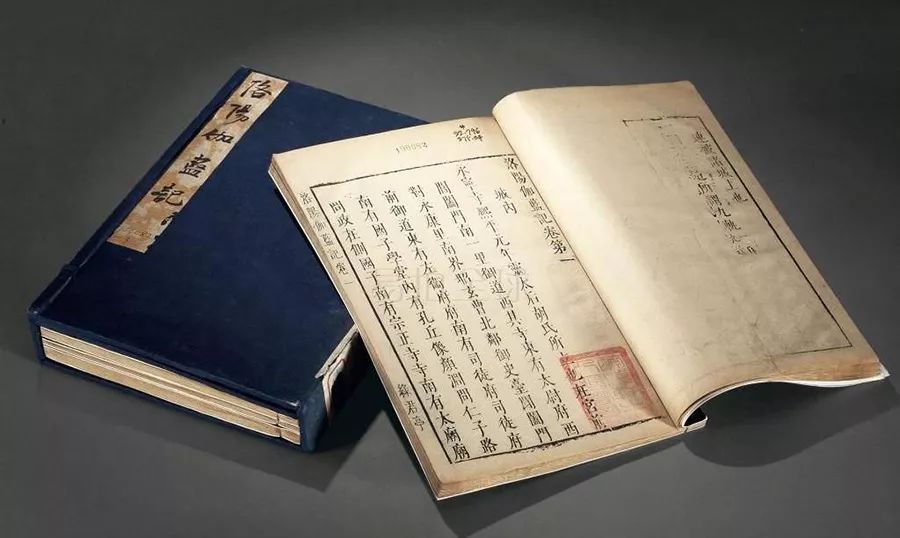 洛陽伽藍記
洛陽伽藍記卷第一
城內
永寧寺熙平元年靈太后胡氏所立也在宮前
閶闔門南一里御道西其寺東有太尉府西
對永康里南界昭玄曹北鄰御史臺閶闔門
前御道東有左衛府府南有司徒府司徒府
南有國子學堂內有孔丘像顏淵問仁子路
問政在側國子南有宗正寺寺南有太廟廟
洛陽伽藍記卷一
綠君亭